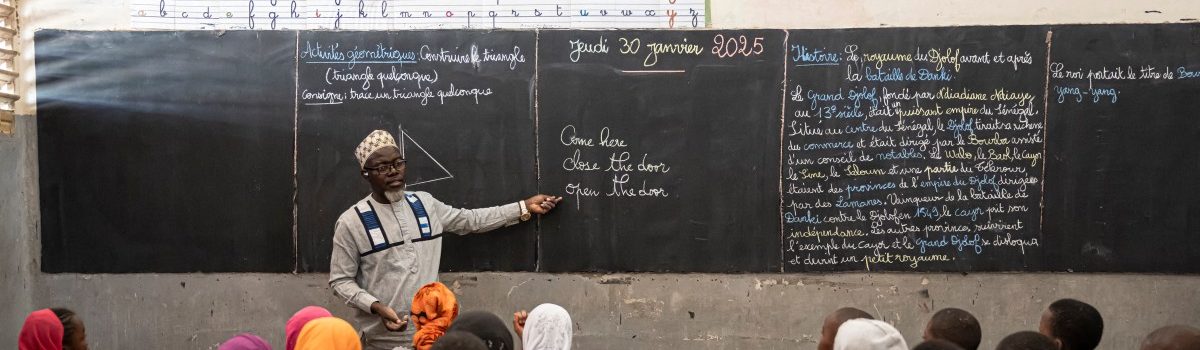 a b c d e f g h i j k l m n o p q r s t u v w x y z
Activités géométriques: Construire le triangle
(triangle quelconque)
Consigne: trace un triangle quelconque
Jeudi 30 janvier 2025
Come here
close the door
open the door
Histoire: Le royaume du Djolof avant et après
la bataille de Danki.
Le Grand Djolof, fondé par Ndiadiane Ndiaye,
au 13e siècle, était un puissant empire du Sénégal.
Situé au centre du Sénégal, le Djolof tirait sa richesse
du commerce et était dirigé par le Bourba assisté
d'un conseil de notables. Le Walo, le Baol, le Cayor
le Sine, le Saloum et une partie du Tékrour
étaient des provinces de l'empire du Djolof dirigées
par des Lamanes. Vainqueur de la bataille de
Danki contre le Djolof en 1549, le Cayor prit son
indépendance. Les autres provinces suivirent
l'exemple du Cayor et le Grand Djolof se disloqua
et devint un petit royaume.
Le roi portait le titre de
Yang-Yang.